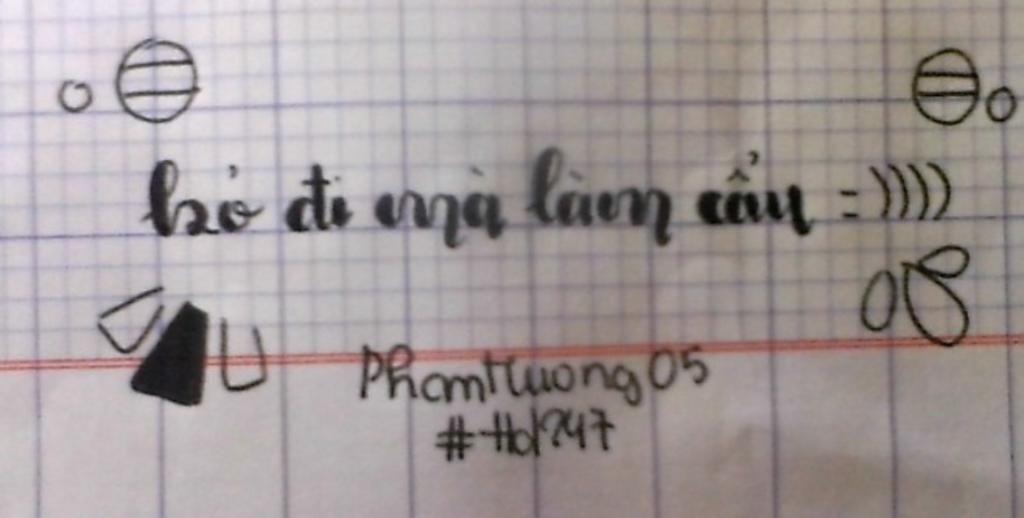 bỏ đi mà làm cẩu =))))
Phamtruong05
#tbl247